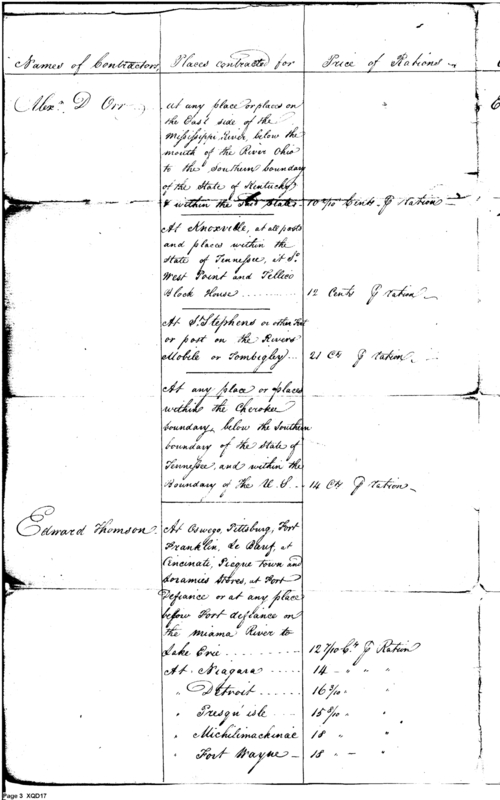 Names of Contractors, Places contracted for Price of Rations
Alexr. D Orr
at any place or places on
the East side of the
Mississippi River, below the
mouth of the River Ohio
to the southern boundary
of the State of Kentucky
& within the said States 10 Cents ⅌ ration
At Knoxville, at all posts
and places within the
State of Tennessee, at So.
West Point and Tellico
Block House .......... 12 Cents ⅌ ration
At St. Stephens or other Fort
or post on the Rivers
Mobile or Tombigbey ... 21 Cts ⅌ ration
At any place or places
within the Cherokee
boundary, below the Southern
boundary of the State of
Tennessee, and within the
Boundary of the U.S. .. 14 Cts ⅌ ration
Edward Thomson. At Oswego, Pittsburg, Fort
Franklin, Le Beuf, at
Cincinati, Pieque Town and
Loramies Stores, at Fort
Defiance or at any place
below Fort defiance on
the miama River to
Lake Erie ........ 12 7/10 Cts ⅌ Ration
At Niagara ...... 14 " " "
" Detroit ...... 16 " "
" Presqu' isle ... 15 " "
" Michilimackinac 18 " "
" Fort Wayne 18 " "
Page 3 XQD17